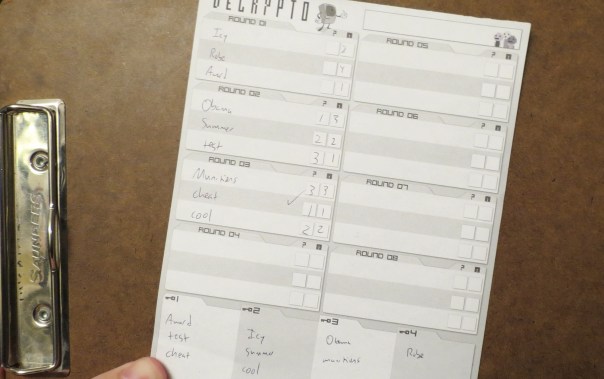 DECRYPTO
ROUND 01
?
Icy 2
Robe 4
Award 1
ROUND 02
?
Obama 1 3
Summer 2 2
test 3 1
ROUND 03
?
3 3
cheat 1 1
cool 2 2
ROUND 04
?
ROUND 05
?
ROUND 06
?
ROUND 07
?
ROUND 08
?
1
Award
test
cheat
2
Icy
Summer
cool
3
Obama
4
Robe
SAUNDERS